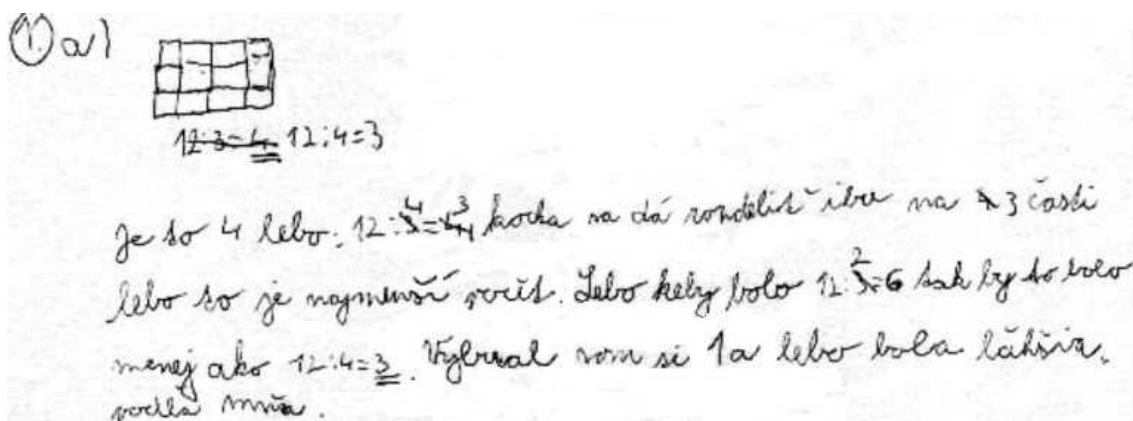 1. a)
12:3=4 12:4=3
Je to 4 lebo: 12:4=3 kocka sa dá rozdeliť iba na 3 časti
lebo to je najmenší počet. Lebo keby bolo 12:2=6 tak by to bolo
menej ako 12:4=3. Vybral som si 1a lebo bola lăhšia.
podla mňa.